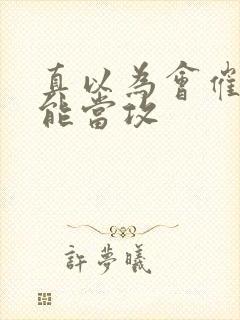 真以為會催
能當攻
許夢曦